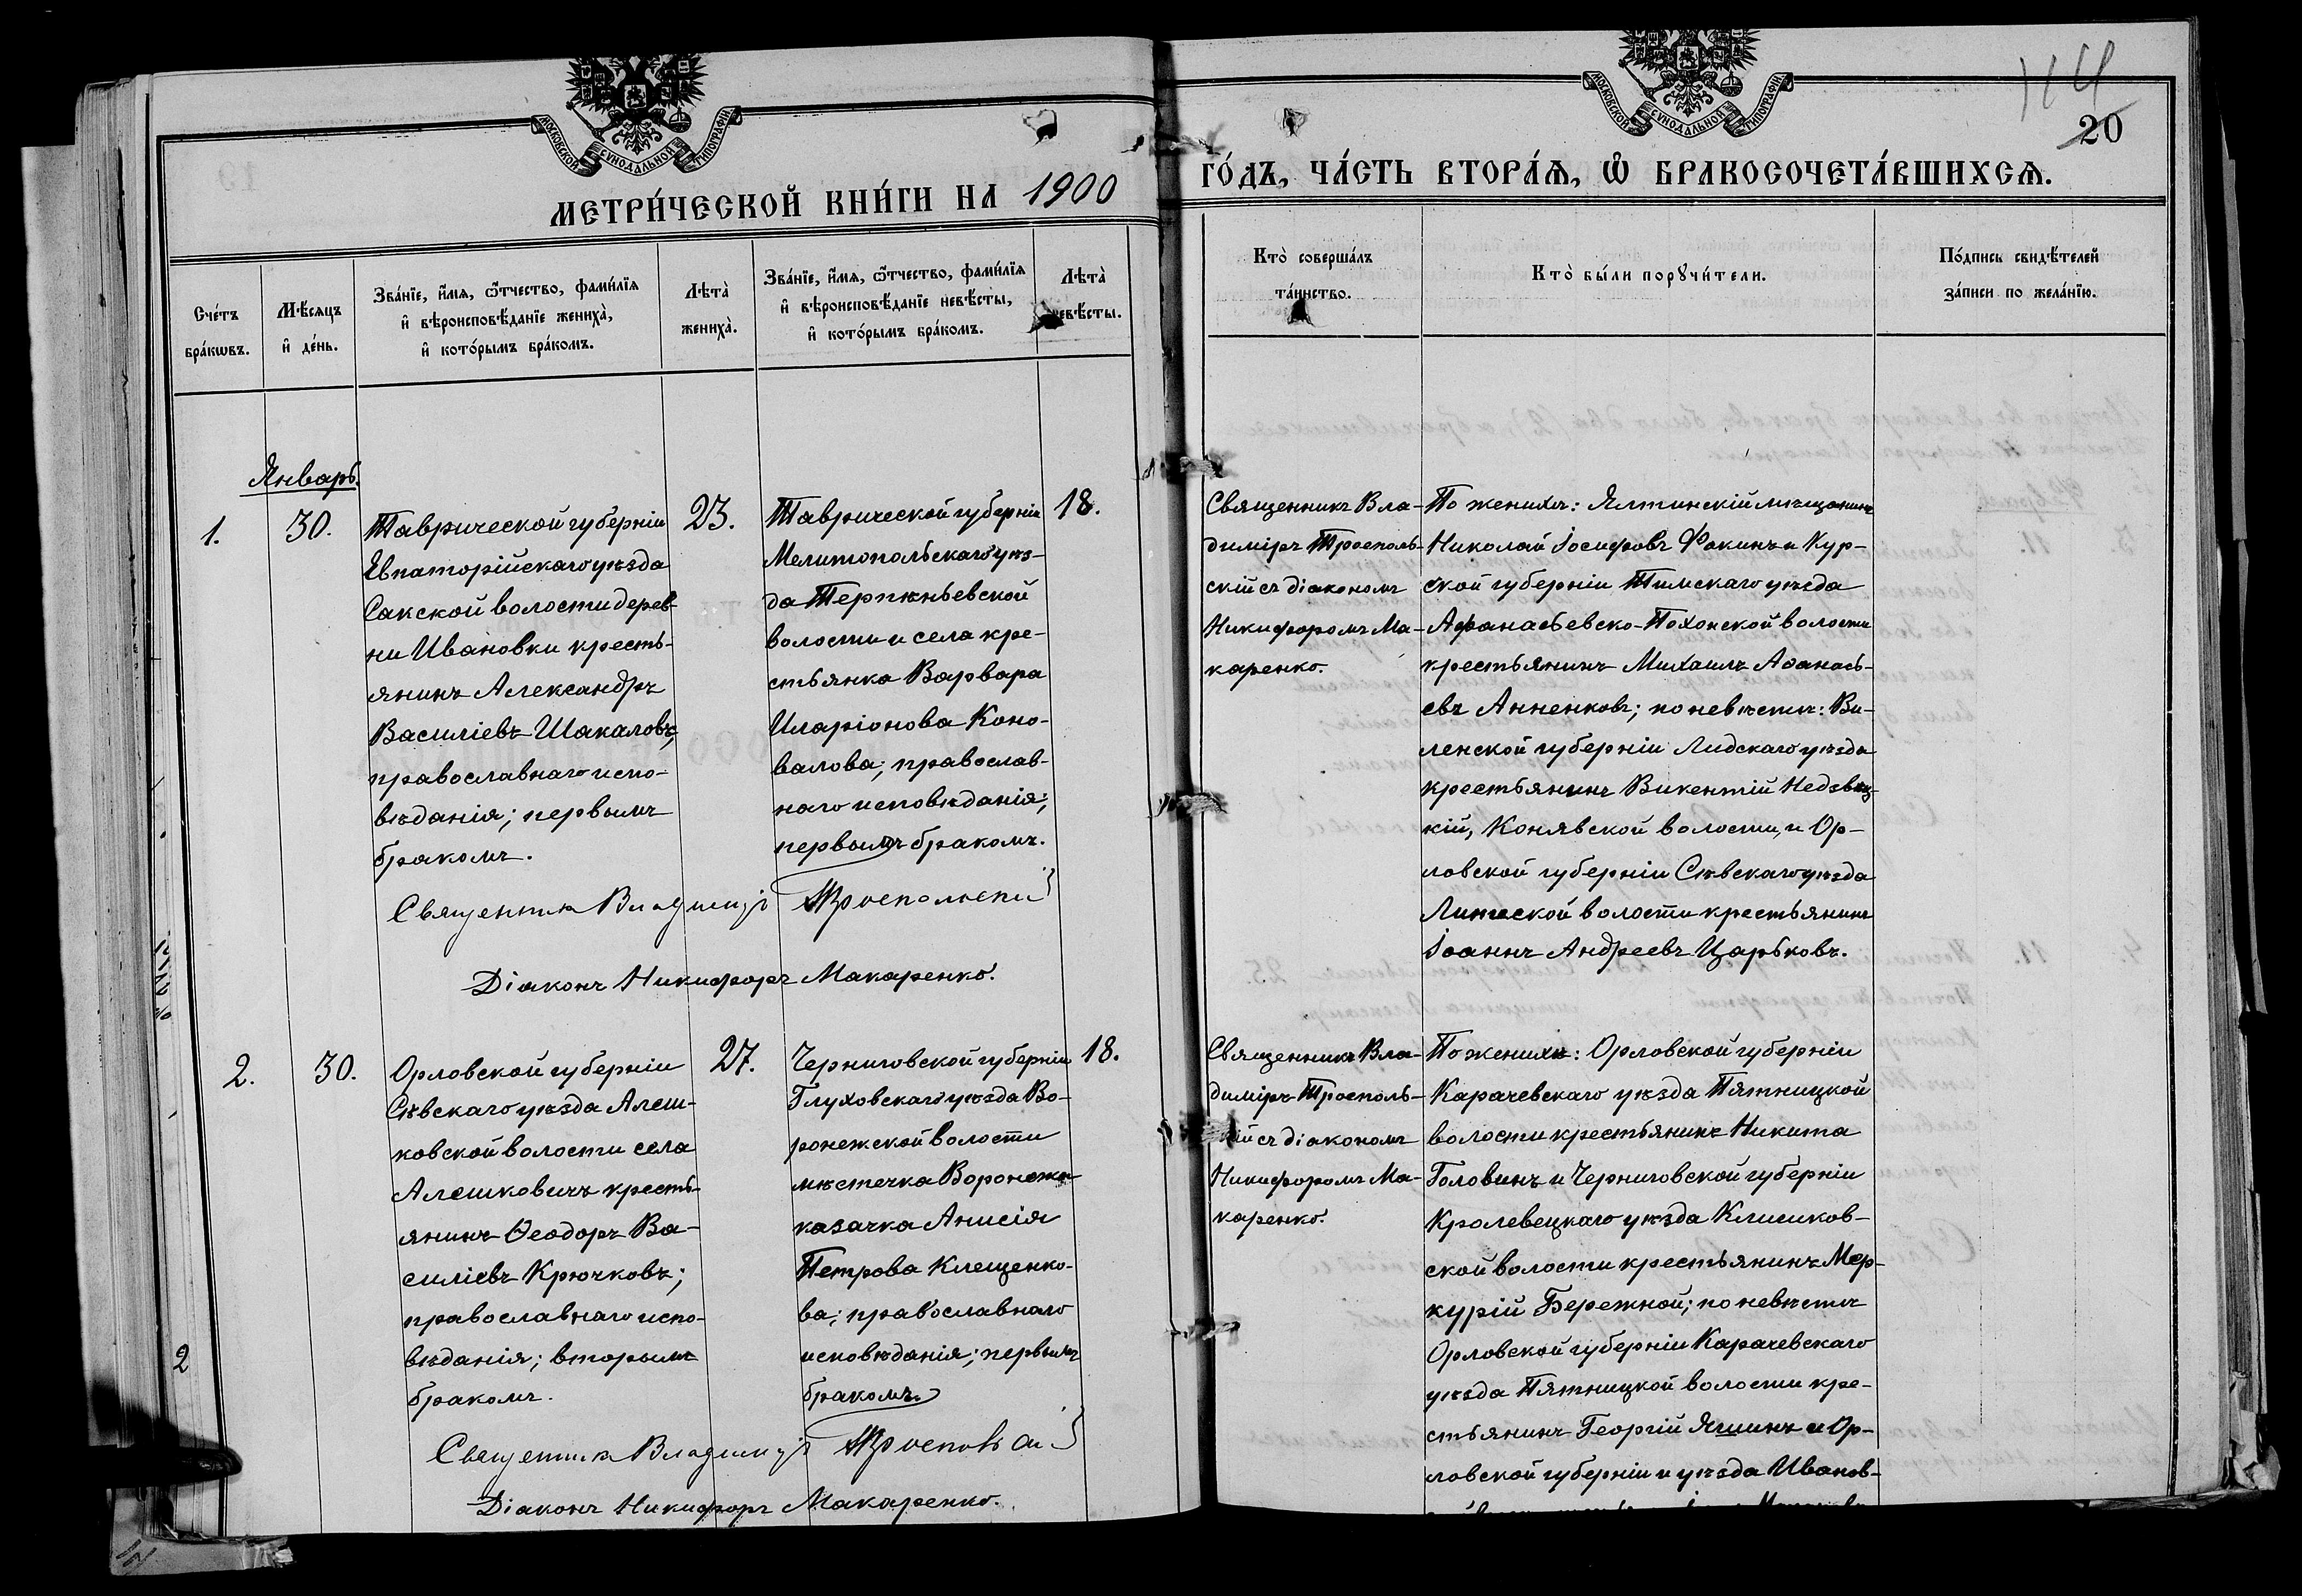 МОСКОВСКОЙ СѴНОДАЛЬНОЙ ТИПОГРАФІИ
МЕТРИ́ЧЕСКОЙ КНИ́ГИ НА 1900
Сче́тъ бра́кѡвъ.
Мѣ́сяцъ и҆ де́нь.
Зва́нїе, и҆́мя, ѻ҆́тчество, фами́лїя
и҆ вѣроисповѣ́данїе жениха̀,
и҆ кото́рымъ бра́комъ.
Лѣта̀ жениха̀.
Зва́нїе, и҆́мя, ѻ҆́тчество, фами́лїя
и҆ вѣроисповѣ́данїе невѣ́сты,
и҆ кото́рымъ бра́комъ.
Лѣта̀
невѣ́сты.
Январь.
1.
30.
Таврической губерніи
Евпаторійскаго уѣзда
Сакской волости дерев-
ни Ивановки кресть-
янинъ Александръ
Василіевъ Шакаловъ,
православнаго испо-
вѣданія; первымъ
бракомъ.
23.
Таврической губерніи
Мелитопольскаго уѣз-
да Терпѣньевской
волости и села кре-
стьянка Варвара
Иларіонова Коно-
валова; православ-
наго исповѣданія;
первымъ бракомъ.
18.
Священникъ Владиміръ Троепольскій
Діаконъ Никифоръ Макаренко.
2.
30.
Орловской губерніи
Сѣвскаго уѣзда Алеш-
ковской волости села
Алешковичъ кресть-
янинъ Ѳеодоръ Ва-
силіевъ Крючковъ;
православнаго испо-
вѣданія; вторымъ
бракомъ.
27.
Черниговской губерніи
Глуховскаго уѣзда Во-
ронежской волости
мѣстечка Воронежа
казачка Анисія
Петрова Клещенко-
ва; православнаго
исповѣданія; первымъ
бракомъ.
18.
Священникъ Владиміръ Троепольскій
Діаконъ Никифоръ Макаренко.
2
МОСКОВСКОЙ СѴНОДАЛЬНОЙ ТИПОГРАФІИ
114
20
ГО́ДЪ, ЧА́СТЬ ВТОРА́Я, Ѡ҆ БРАКОСОЧЕТА́ВШИХСЯ.
Кто̀ соверша́лъ
та́инство.
Кто̀ бы́ли порꙋчи́тели.
По́дпись свидѣ́телей
за́писи по жела́нїю.
Священникъ Вла-
диміръ Троеполь-
скій съ діакономъ
Никифоромъ Ма-
каренко.
По женихѣ: Ялтинскій мѣщанинъ
Николай Іосифовъ Фокинъ и Кур-
ской губерніи Тимскаго уѣзда
Афанасьевско-Похонской волости
крестьянинъ Михаилъ Аѳанась-
евъ Анненковъ; по невѣстѣ: Ви-
ленской губерніи Лидскаго уѣзда
крестьянинъ Викентій Недзвѣц-
кій, Конявской волости, и Ор-
ловской губерніи Сѣвскаго уѣзда
волости крестьянинъ
Іоаннъ Андреевъ Царьковъ.
Священникъ Вла-
диміръ Троеполь-
скій съ діакономъ
Никифоромъ Ма-
каренко.
По женихѣ: Орловской губерніи
Карачевскаго уѣзда Пятницкой
волости крестьянинъ Никита
Головинъ и Черниговской губерніи
Кролевецкаго уѣзда Клишков-
ской волости крестьянинъ Мер-
курій Бережной; по невѣстѣ
Орловской губерніи Карачевскаго
уѣзда Пятницкой волости кре-
стьянинъ Георгій Яшинъ и Ор-
ловской губерніи и уѣзда Иванов-